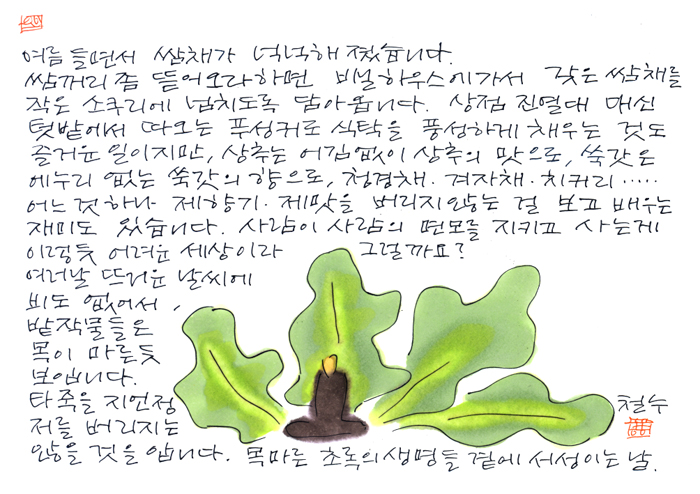 여름 들면서 쌈채가 넉넉해 졌습니다.
쌈꺼리 쫌 뜯어오라하면 비닐하우스에가서 갖은 쌈채를
작은 소쿠리에 넘치도록 담아옵니다. 상점 진열대 대신
텃밭에서 따오는 푸성귀로 식탁을 풍성하게 채우는 것도
즐거운 일이지만, 상추는 어김없이 상추의 맛으로, 쑥갓은
에누리 없는 쑥갓의 향으로, 청경채·겨자채·치커리·····
어느것하나 제향기·제맛을 버리지않는 걸 보고 배우는
재미도 있습니다. 사람이 사람의 면모를 지키고 사는게
이렇듯 어려운 세상이라 그럴까요?
여러날 뜨거운 날씨에
비도 없어서,
밭작물들은
목이 마른듯
보입니다.
타죽을 지언정
저를 버리지는
않을 것을 압니다. 목마른 초록의 생명들 곁에 서성이는 날.
철수